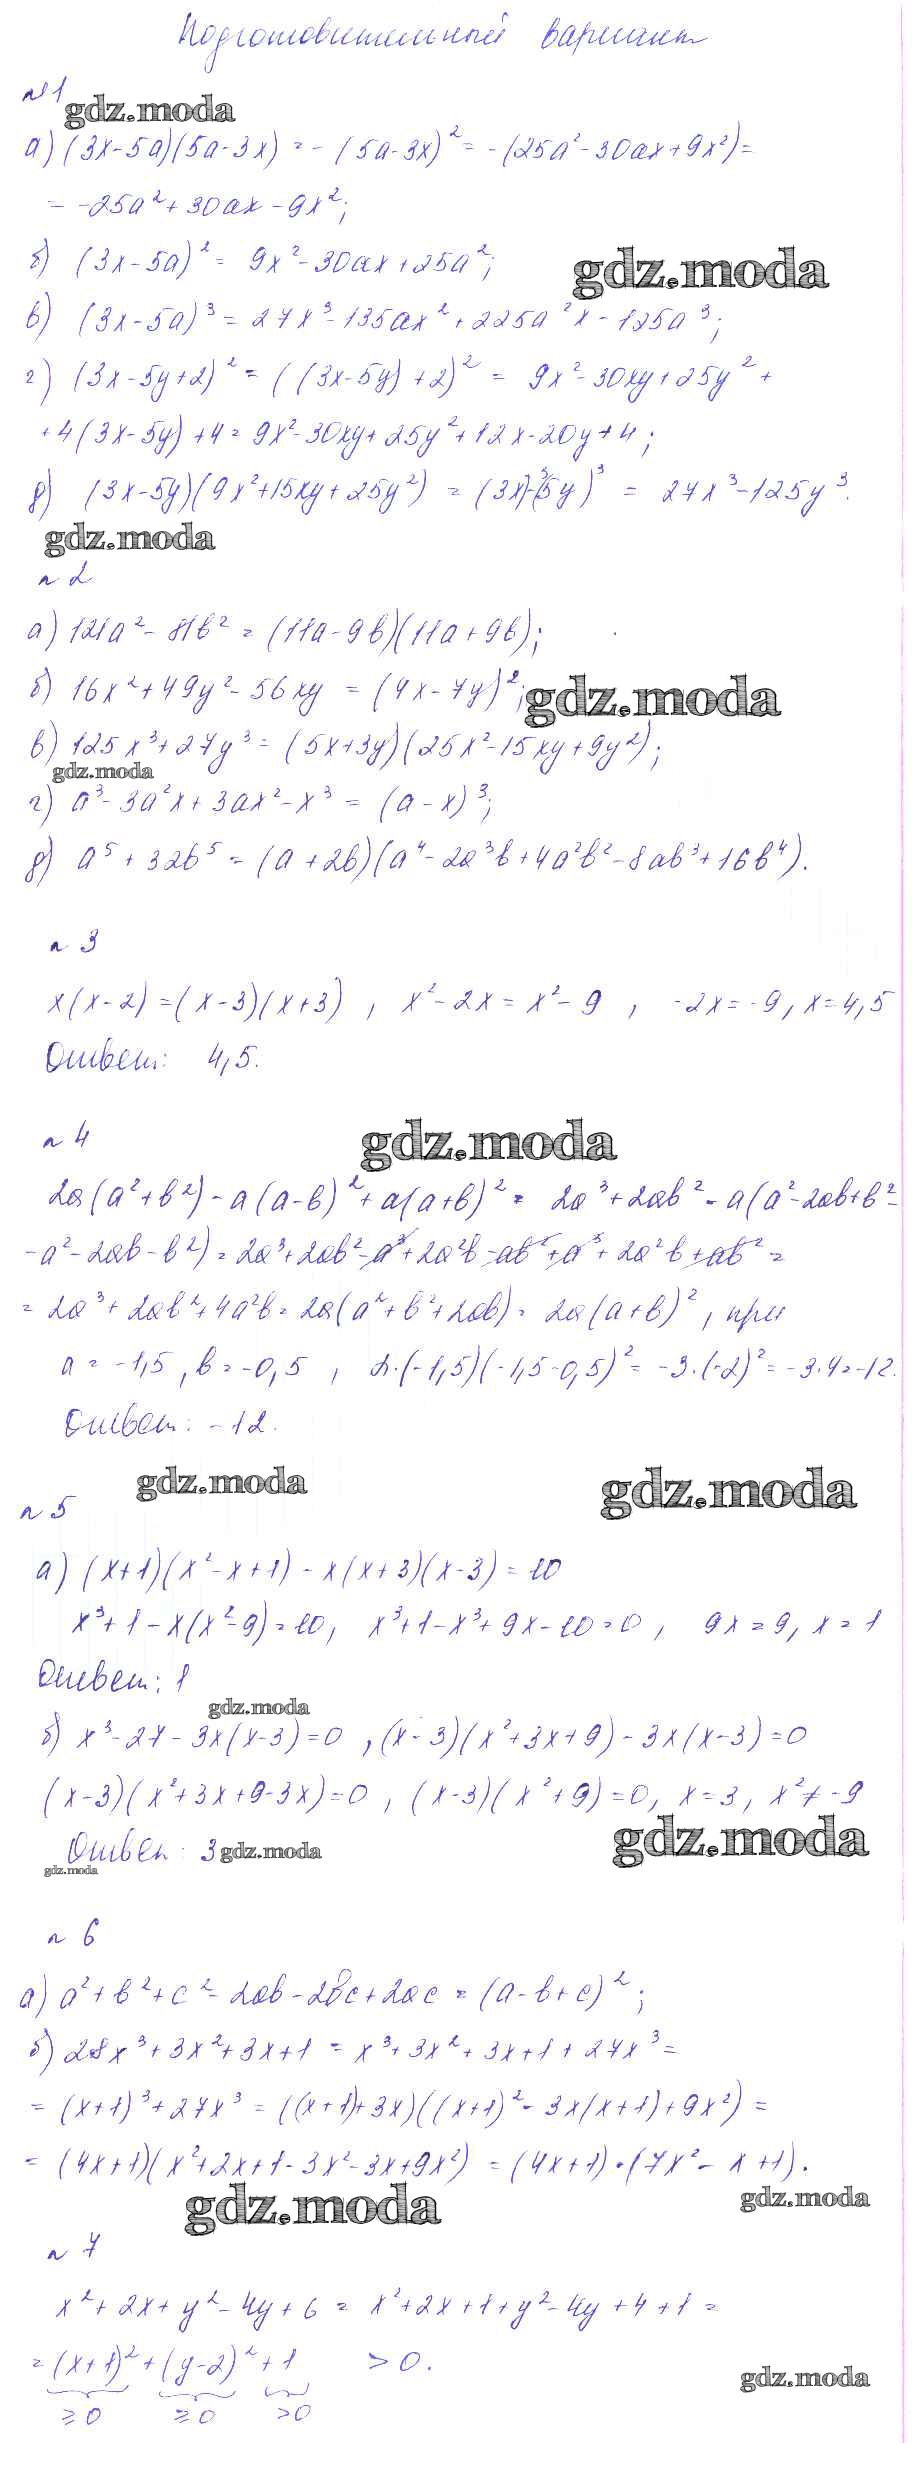 Подготовительный вариант
№1
gdz.moda
а) (3x-5a)(5a-3x) = -(5a-3x)² = -(25a²-30ax+9x²)=
= -25a²+30ax-9x²;
б) (3x-5a)² = 9x²-30ax+25a²;
gdz.moda
в) (3x-5a)³ = 27x³-135ax²+225a²x-125a³;
г) (3x-5y+2)² = ((3x-5y)+2)² = 9x²-30xy+25y²+
+4(3x-5y)+4 = 9x²-30xy+25y²+12x-20y+4;
д) (3x-5y)(9x²+15xy+25y²) = (3x)³-(5y)³ = 27x³-125y³.
gdz.moda
№2
а) 121a²-81b² = (11a-9b)(11a+9b);
б) 16x²+49y²-56xy = (4x-7y)²;
gdz.moda
в) 125x³+27y³ = (5x+3y)(25x²-15xy+9y²);
gdz.moda
г) a³-3a²x+3ax²-x³ = (a-x)³;
д) a⁵+32b⁵ = (a+2b)(a⁴-2a³b+4a²b²-8ab³+16b⁴).
№3
x(x-2)=(x-3)(x+3), x²-2x = x²-9, -2x=-9, x=4,5
Ответ: 4,5.
№4
gdz.moda
2a(a²+b²)-a(a-b)²+a(a+b)² = 2a³+2ab²-a(a²-2ab+b²-
-a²-2ab-b²) = 2a³+2ab²-a³+2a²b-ab²+a³+2a²b+ab² =
= 2a³+2ab²+4a²b = 2a(a²+b²+2ab) = 2a(a+b)², при
a = -1,5, b = -0,5, 2·(-1,5)(-1,5-0,5)² = -3·(-2)² = -3·4 = -12.
Ответ: -12.
gdz.moda
gdz.moda
№5
а) (x+1)(x²-x+1)-x(x+3)(x-3)=10
x³+1-x(x²-9)=10, x³+1-x³+9x-10=0, 9x=9, x=1
Ответ: 1
gdz.moda
б) x³-27-3x(x-3)=0, (x-3)(x²+3x+9)-3x(x-3)=0
(x-3)(x²+3x+9-3x)=0, (x-3)(x²+9)=0, x=3, x²≠-9
gdz.moda
Ответ: 3
gdz.moda
gdz.moda
№6
а) a²+b²+c²-2ab-2bc+2ac = (a-b+c)²;
б) 28x³+3x²+3x+1 = x³+3x²+3x+1+27x³=
= (x+1)³+27x³ = ((x+1)+3x)((x+1)²-3x(x+1)+9x²)=
= (4x+1)(x²+2x+1-3x²-3x+9x²) = (4x+1)·(7x²-x+1).
gdz.moda
gdz.moda
№7
x²+2x+y²-4y+6 = x²+2x+1+y²-4y+4+1=
= (x+1)²+(y-2)²+1 >0.
gdz.moda
≥0 ≥0 >0